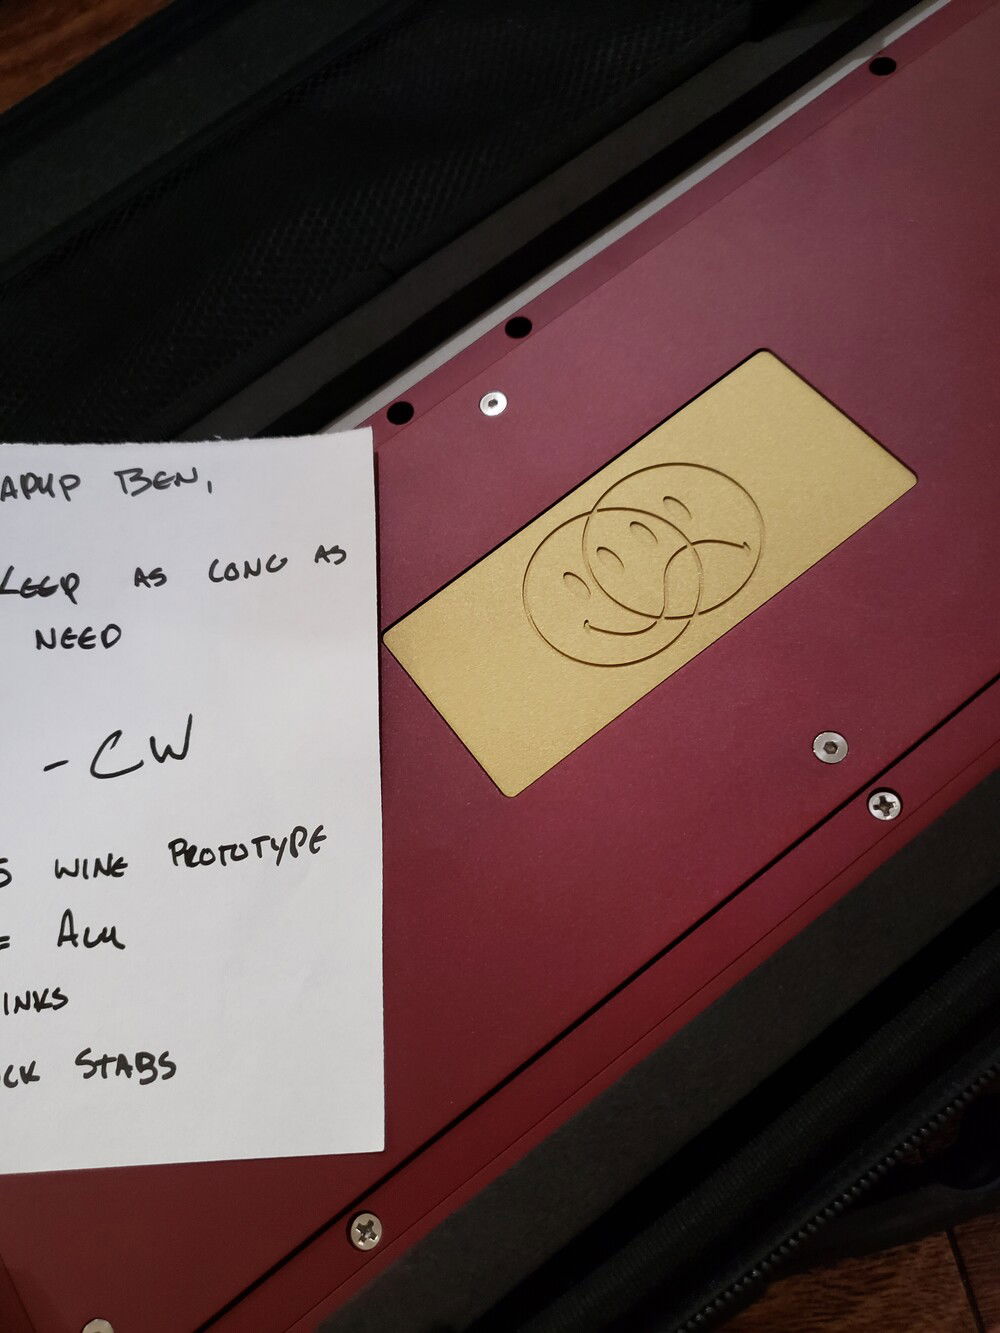 APUP BEN,
KEEP AS LONG AS
NEED
- CW
S WINE PROTOTYPE
= ALU
INKS
CK STABS